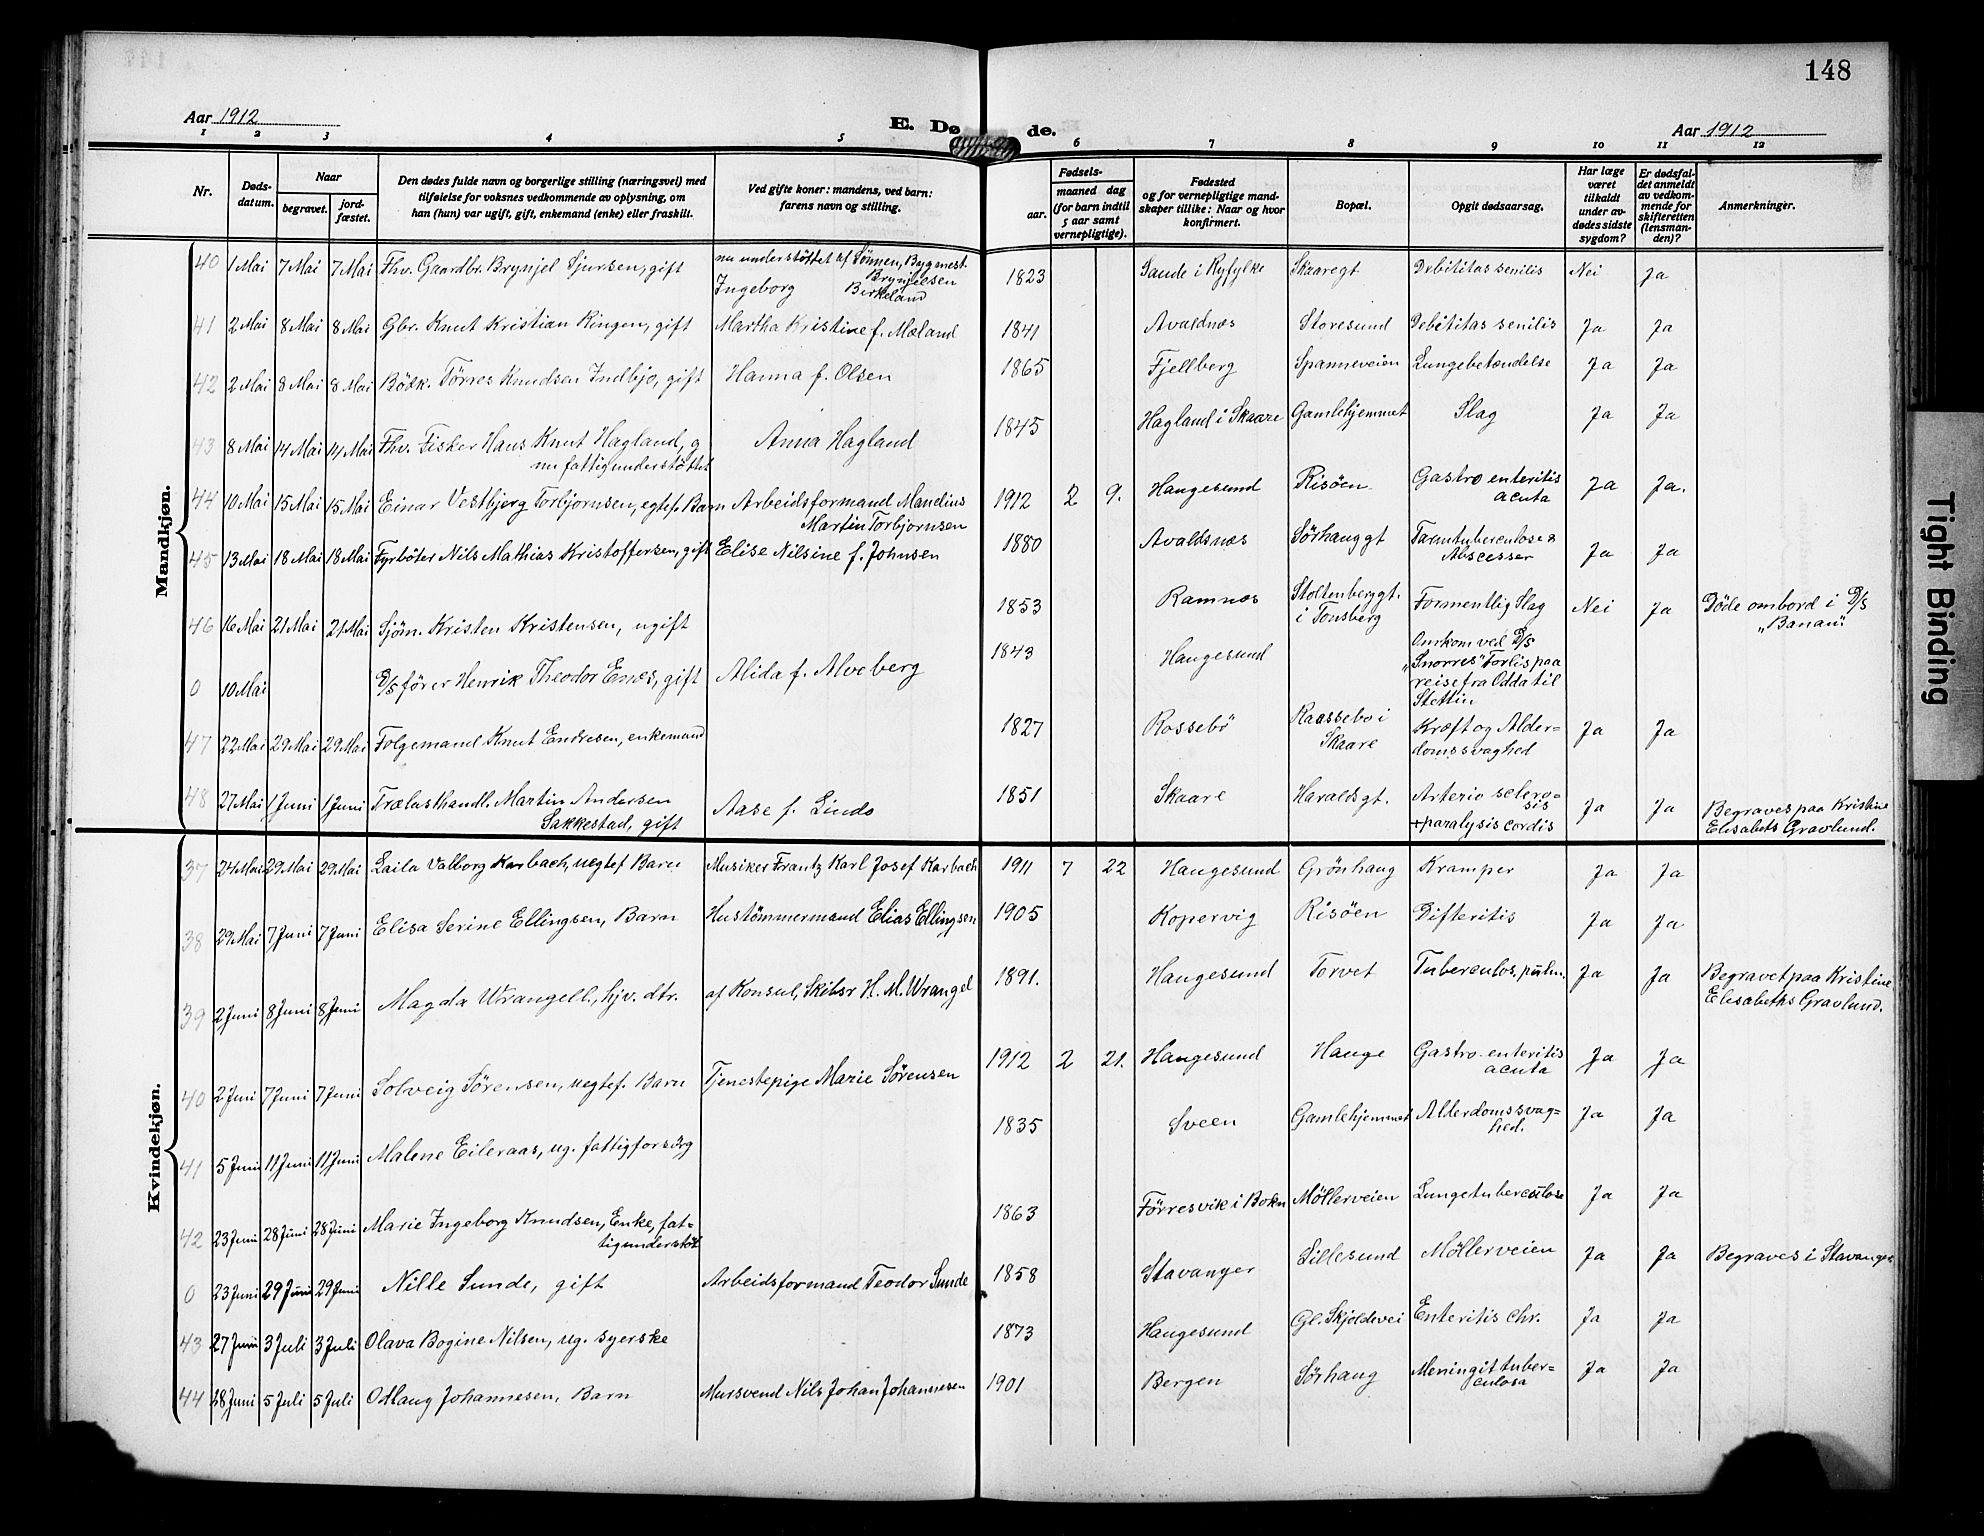 148
Aar 1912
E. Dø
de.
Aar 1912
1 2 3 4 5 6 7 8 9 10 11 12
Nr.
Døds-
datum.
Naar
begravet.
jord-
fæstet.
Den dødes fulde navn og borgerlige stilling (næringsvei) med
tilføielse for voksnes vedkommende av oplysning, om
han (hun) var ugift, gift, enkemand (enke) eller fraskilt.
Ved gifte koner: mandens, ved barn:
farens navn og stilling.
Fødsels-
aar.
maaned dag
(for barn indtil
5 aar samt
vernepligtige).
Fødested
og for vernepligtige mand-
skaper tillike: Naar og hvor
konfirmert.
Bopæl.
Opgit dødsaarsag.
Har læge
været
tilkaldt
under av-
dødes sidste
sygdom?
Er dødsfal-
det anmeldt
av vedkom-
mende for
skifteretten
(lensman-
den)?
Anmerkninger.
Mandkjøn.
40 1 Mai 7 Mai 7 Mai Fhv. Gaardbr. Brynjel Sjursen, gift nu understöttet af Sönnen, Bygmest. 1823 Sande i Ryfylke Skaaregt Debititas senilis Nei Ja
Brynjelsen
Ingeborg Birkeland
41 2 Mai 8 Mai 8 Mai Gbr. Knut Kristian Ringen, gift Martha Kristine f. Mæland 1841 Avaldnæs Storesund Debititas senilis Ja Ja
42 2 Mai 8 Mai 8 Mai Bödk. Törres Knudsen Indbjo, gift Hanna f. Olsen 1865 Fjellberg Spanneveien Lungebetændelse Ja Ja
43 8 Mai 14 Mai 14 Mai Fhv. Fisker Hans Knut Hagland, g Anna Hagland 1845 Hagland i Skaare Gamlehjemmet Slag Ja Ja
nu fattigunderstöttet
44 10 Mai 15 Mai 15 Mai Einar Vestbjerg Torbjornsen, egtef. Barn Arbeidsformand Mandius 1912 2 9. Haugesund Risöen Gastro enteritis Ja Ja.
Martin Torbjornsen acuta
45 13 Mai 18 Mai 18 Mai Fyrböter Nils Mathias Kristoffersen, gift Elise Nilsine f. Johnsen 1880 Avaldsnæs Sörhauggt Tarmtuberculose & Ja Ja
Abscesser
46 16 Mai 21 Mai 21 Mai Sjöm. Kristen Kristensen, ugift 1853 Ramnæs Stoltenberggt. Formentlig Slag Nei Ja Döde ombord i D/s
i Tonsberg „Banan".
0 10 Mai D/s förer Henrik Theodor Enes, gift Alida f. Alveberg 1843 Haugesund Omkom ved D/s
„Snorres" Forlis paa
reise fra Odda til
Stettin
47 22 Mai 29 Mai 29 Mai Folgemand Knut Endresen, enkemand 1827 Rossebö Raassebo i Kræft og Alder- Ja Ja
Skaare domssvaghed
48 27 Mai 1 Juni 1 Juni Trælasthandl. Martin Andersen Aase f. Lindo 1851 Skaare Haraldsgt. Arterio sclero- Ja Ja Begraves paa Kristine
sis
Sakkestad, gift + paralysis cordis Elisabets Gravlund.
Kvindekjøn.
37 24 Mai 29 Mai 29 Mai Laila Valborg Karbach, uegtef Barn Musiker Frantz Karl Josef Karbach 1911 7 22 Haugesund Grönhaug Kramper Ja Ja
38 29 Mai 7 Juni 7 Juni Elisa Serine Ellingsen, Barn Hustömmermand Elias Ellingsen 1905 Kopervig Risöen Difteritis Ja Ja
39 2 Juni 8 Juni 8 Juni Magda Wrangell, hjv. dtr. af Konsul, Skibsr H. M. Wrangel 1891. Haugesund Torvet Tuberculos. pulm. Ja Ja Begravet paa Kristine
Elisabeths Gravlund.
40 2 Juni 7 Juni 7 Juni Solveig Sörensen, uegtef. Barn Tjenestepige Marie Sörensen 1912 2 21. Haugesund Hauge Gastro-enteritis Ja Ja
acuta
41 5 Juni 11 Juni 11 Juni Malene Eileraas, ug. fattigforsörg 1835 Sveen Gamlehjemmet Alderdomssvag- Ja Ja
hed.
42 23 Juni 28 Juni 28 Juni Marie Ingeborg Knudsen, Enke, fat- 1863 Förresvik i Bokn Möllerveien Lungetuberculose Ja Ja
tigunderstöt
0 23 Juni 29 Juni 29 Juni Nille Sunde, gift Arbeidsformand Teodor Sunde 1858 Stavanger Lillesund Möllerveien Ja Ja Begraves i Stavanger
43 27 Juni 3 Juli 3 Juli Olava Bogine Nilsen, ug. syerske 1873 Haugesund Gl. Skjoldevei Enteritis chr. Ja Ja
44 28 Juni 5 Juli 5 Juli Odlaug Johannesen, Barn Mursvend Nils Johan Johannesen 1901 Bergen Sörhaug Meningit tuber- Ja Ja
culosa
Tight Binding